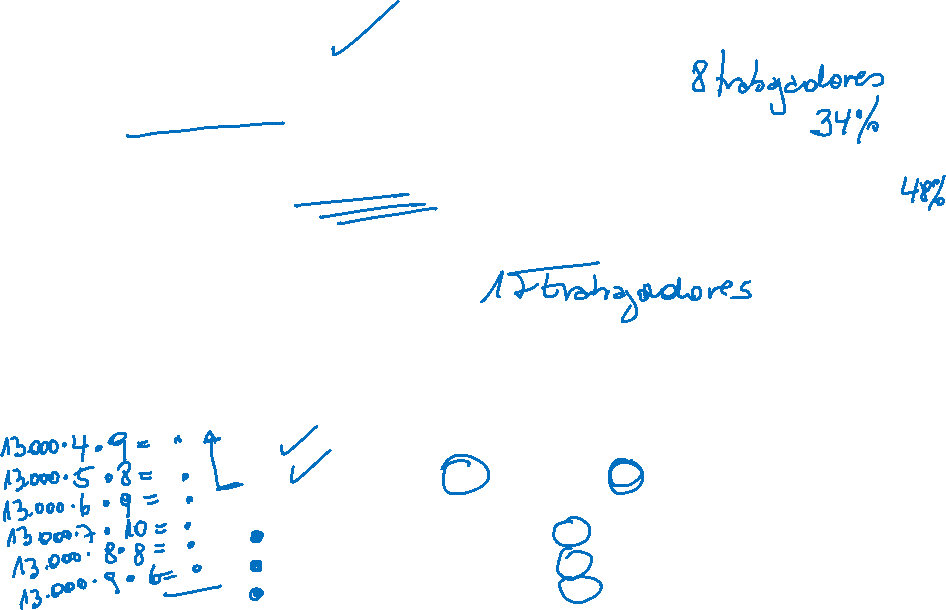 8 trabajadores
34%
48%
17 trabajadores
13.000·4·9=
13.000·5·8=
13.000·6·9=
13.000·7·10=
13.000·8·8=
13.000·9·6=